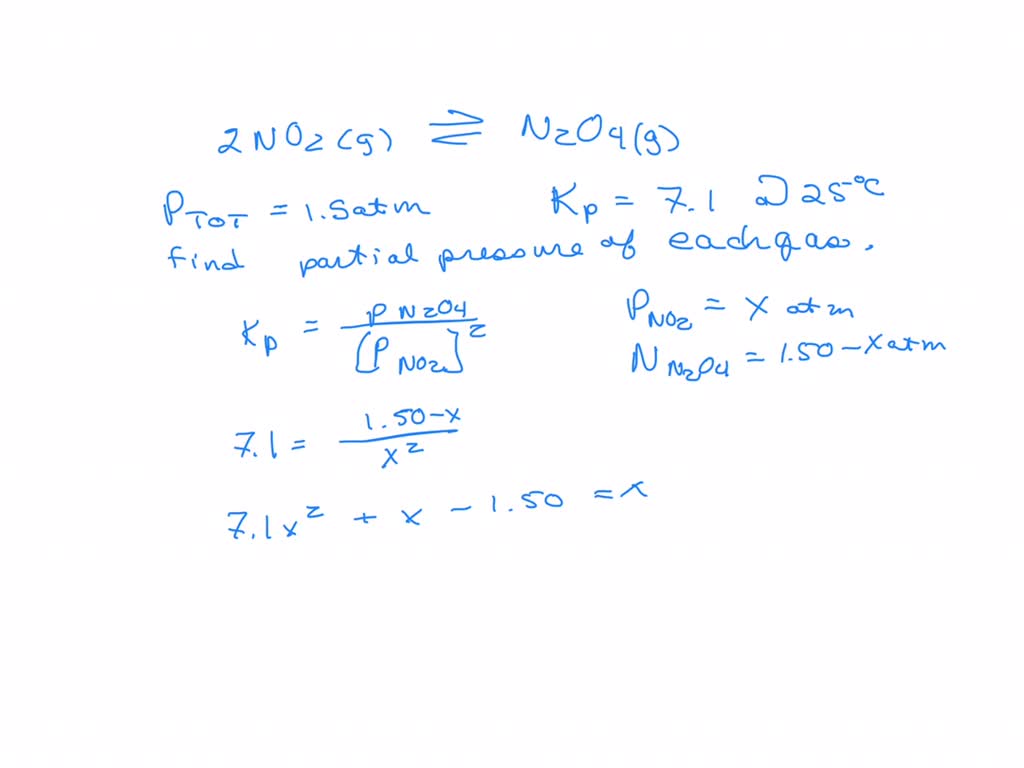 2NO₂(g) ⇌ N₂O₄(g)
P_TOT = 1.5atm    Kp = 7.1 @ 25°C
find partial pressure of each gas.
Kp = PN₂O₄ / [P_NO₂]²    P_NO₂ = x atm
N_N₂O₄ = 1.50 - x atm
7.1 = 1.50-x / x²
7.1x² + x - 1.50 = x